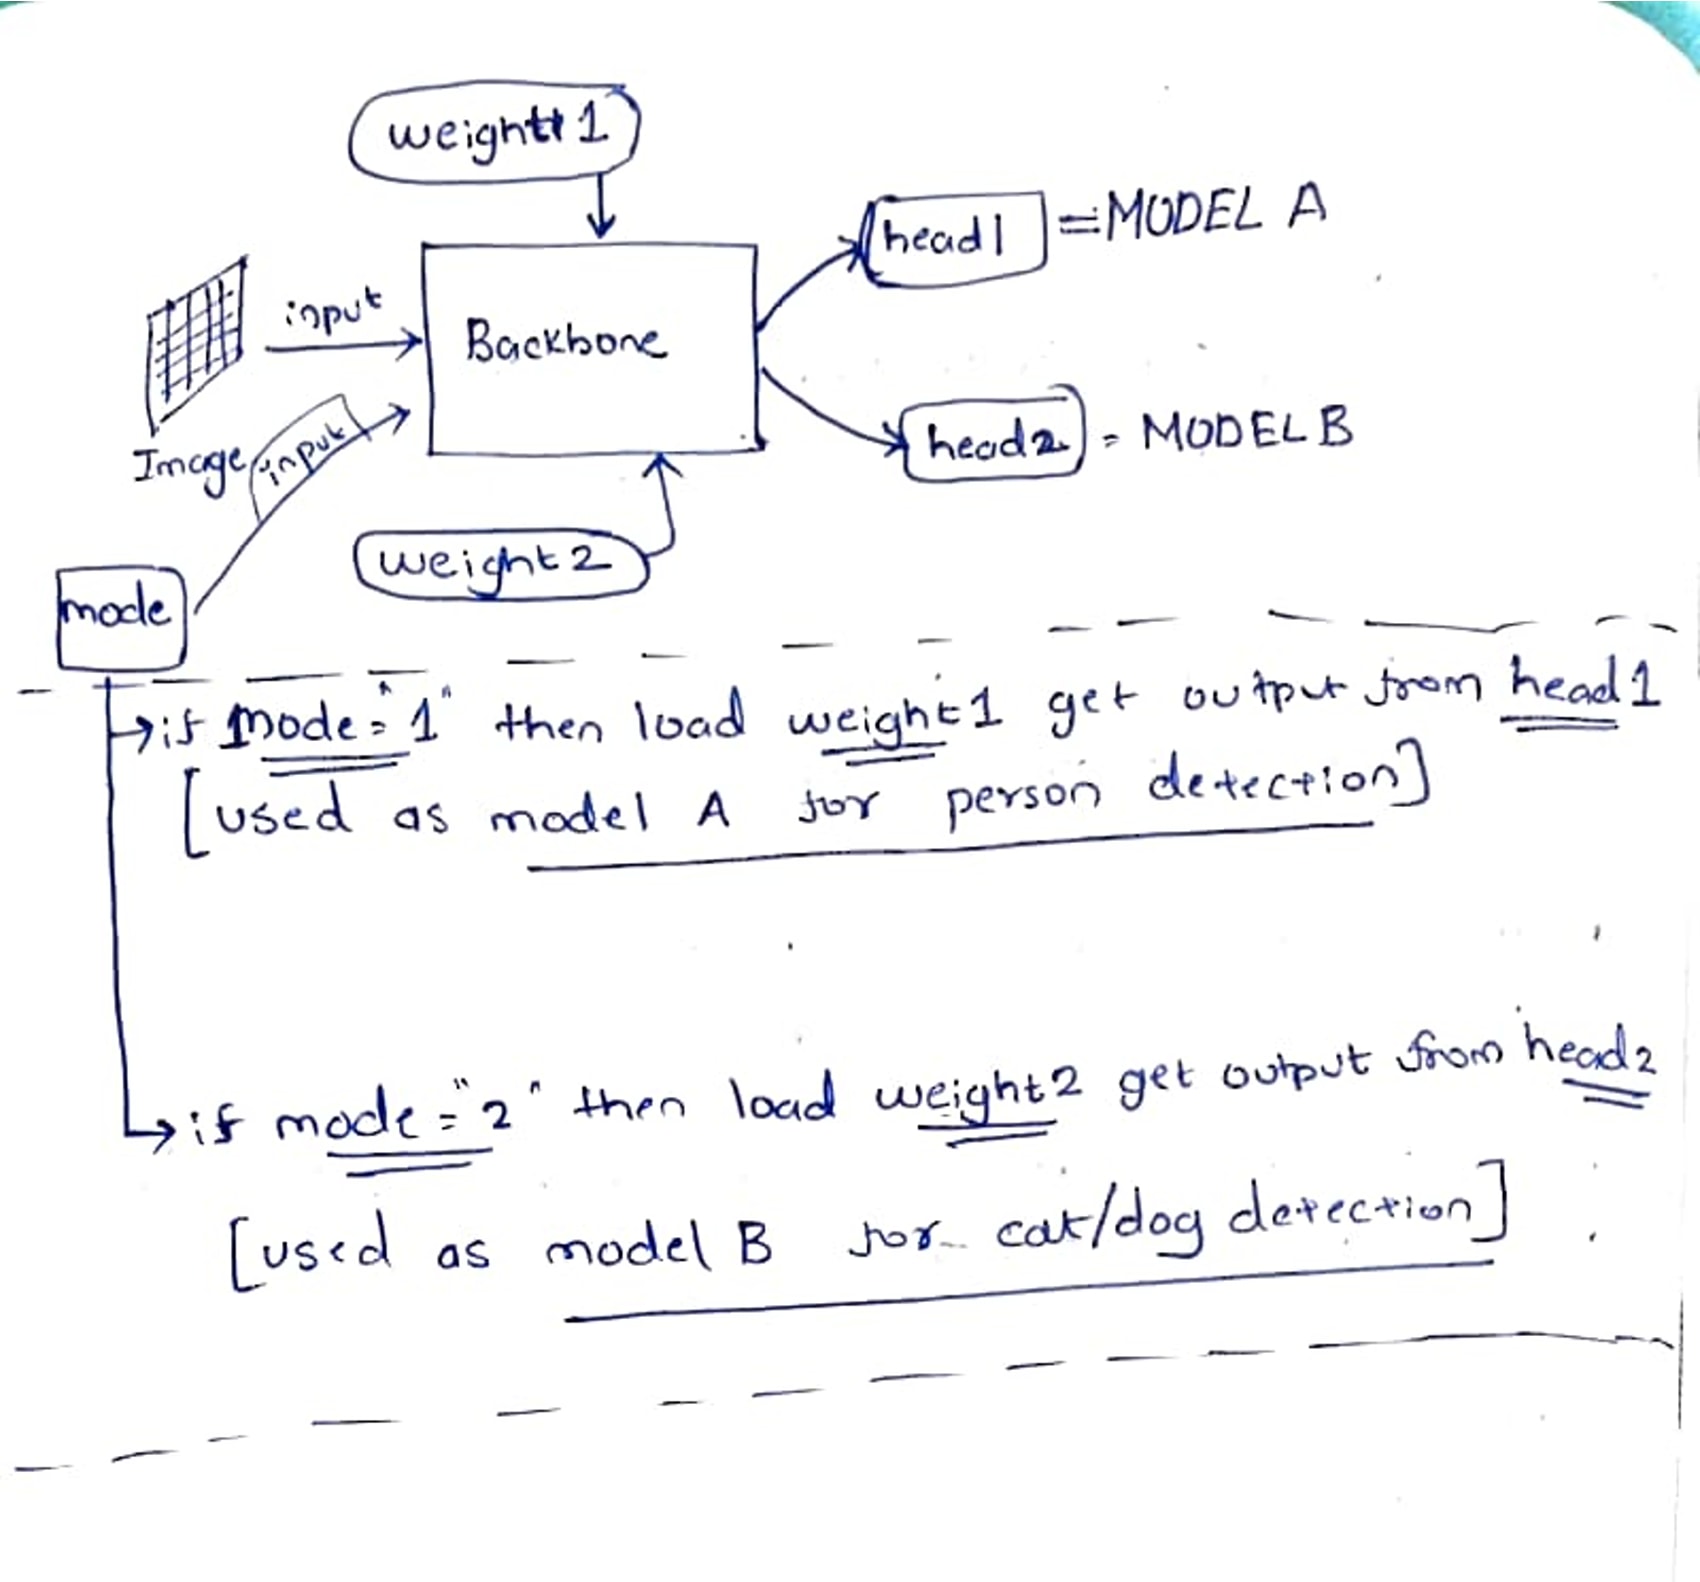 weight 1
head1 = MODEL A
input
Backbone
Image
input
head2 = MODEL B
weight 2
mode
if mode = "1" then load weight1 get output from head1
[used as model A for person detection]
if mode = "2" then load weight2 get output from head2
[used as model B for cat/dog detection]